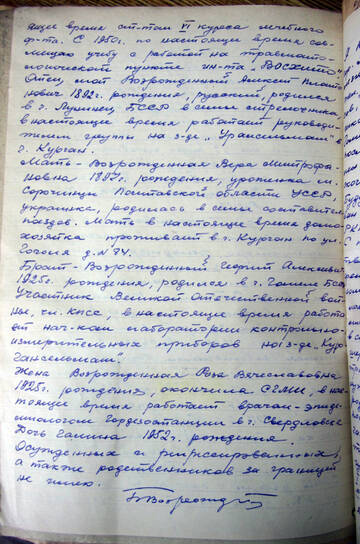 ящее время ст-том VI курса лечебного
ф-та. С 1950г. по настоящее время сов-
мещаю учебу с работой на травмато-
логическом пункте ин-та, ВОСХИТО
Отец мой Возрожденный Алексей Плато
нович 1892г. рождения, русский, родился
в г. Лунинец БССР в семье стрелочника
в настоящее время работает руководи-
телем группы на з-де "Уралсельмаш" в
г. Курган.
Мать - Возрожденная Вера Митрофа-
новна 1897г. рождения, уроженка м.
Сорочинцы Полтавской области УССР,
украинка, родилась в семье составителя
поездов. Мать в настоящее время домо-
хозяйка проживает в г. Курган по ул.
Гоголя д. № 74.
Брат - Возрожденный Георгий Алексеевич
1925г. рождения, родился в г. Гомель БССР
Участник Великой Отечественной вой-
ны, чл. КПСС, в настоящее время работа
ет нач-ком лаборатории контрольно-
измерительных приборов на з-де "Кур-
гансельмаш"
Жена Возрожденная Роза Вячеславовна
1925г. рождения, окончила СГМИ, в нас-
тоящее время работает врачом-эпиде-
миологом горdezстанции в г. Свердловске
Дочь Галина 1952г. рождения.
Осужденных и репрессированных,
а также родственников за границей
не имею.